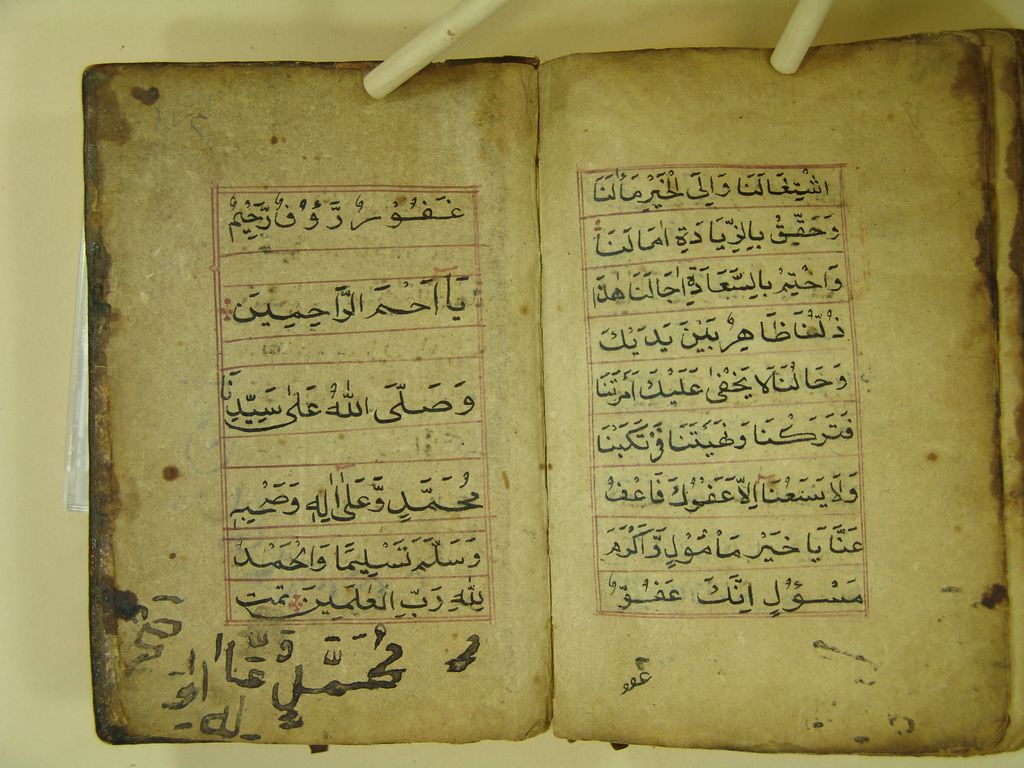 اشْتِغَالَنَا وَاِلَى الْخَيْرِ مَاٰلَنَا
وَحَقِّقْ بِالزِّيَادَةِ اٰمَالَنَا
وَاخْتِمْ بِالسَّعَادَةِ اٰجَالَنَا هٰذَا
ذُلُّنَا ظَاهِرٌ بَيْنَ يَدَيْكَ
وَحَالُنَا لَا يَخْفٰى عَلَيْكَ اَمَرْتَنَا
فَتَرَكْنَا وَنَهَيْتَنَا فَارْتَكَبْنَا
وَلَا يَسَعُنَا اِلَّا عَفْوُكَ فَاعْفُ
عَنَّا يَا خَيْرَ مَاْمُوْلٍ وَّاَكْرَمَ
مَسْؤُلٍ اِنَّكَ عَفُوٌّ
غفو
غَفُوْرٌ رَّؤُفٌ رَّحِيْمٌ
يَا اَرْحَمَ الرَّاحِمِيْنَ
وَصَلَّى اللّٰهُ عَلٰى سَيِّدِنَا
مُحَمَّدٍ وَّعَلٰى اٰلِهٖ وَصَحْبِهٖ
وَسَلَّمَ تَسْلِيْمًا وَالْحَمْدُ
لِلّٰهِ رَبِّ الْعٰلَمِيْنَ تمت
مُحَمَّدٍ